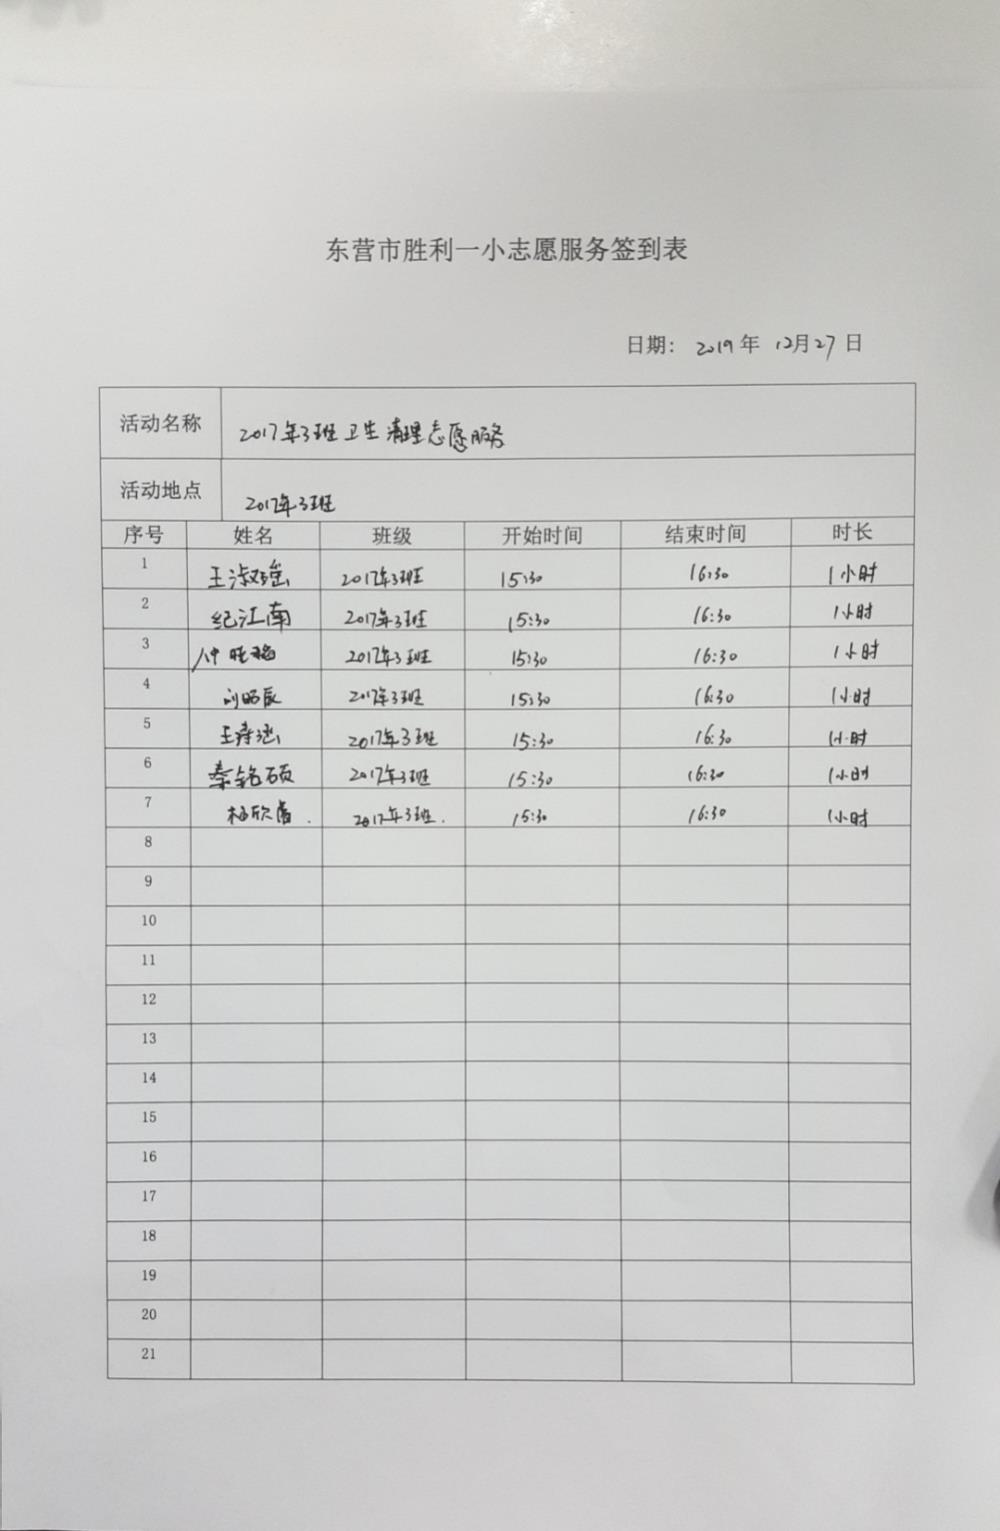 东营市胜利一小志愿服务签到表
日期： 2019 年 12月27 日
活动名称 2017年3班卫生清理志愿服务
活动地点 2017年3班
序号 姓名 班级 开始时间 结束时间 时长
1 王淑瑶 2017年3班 15:30 16:30 1小时
2 纪江南 2017年3班 15:30 16:30 1小时
3 2017年3班 15:30 16:30 1小时
4 刘昭辰 2017年3班 15:30 16:30 1小时
5 王诗涵 2017年3班 15:30 16:30 1小时
6 秦铭硕 2017年3班 15:30 16:30 1小时
7 2017年3班. 15:30 16:30 1小时
8
9
10
11
12
13
14
15
16
17
18
19
20
21